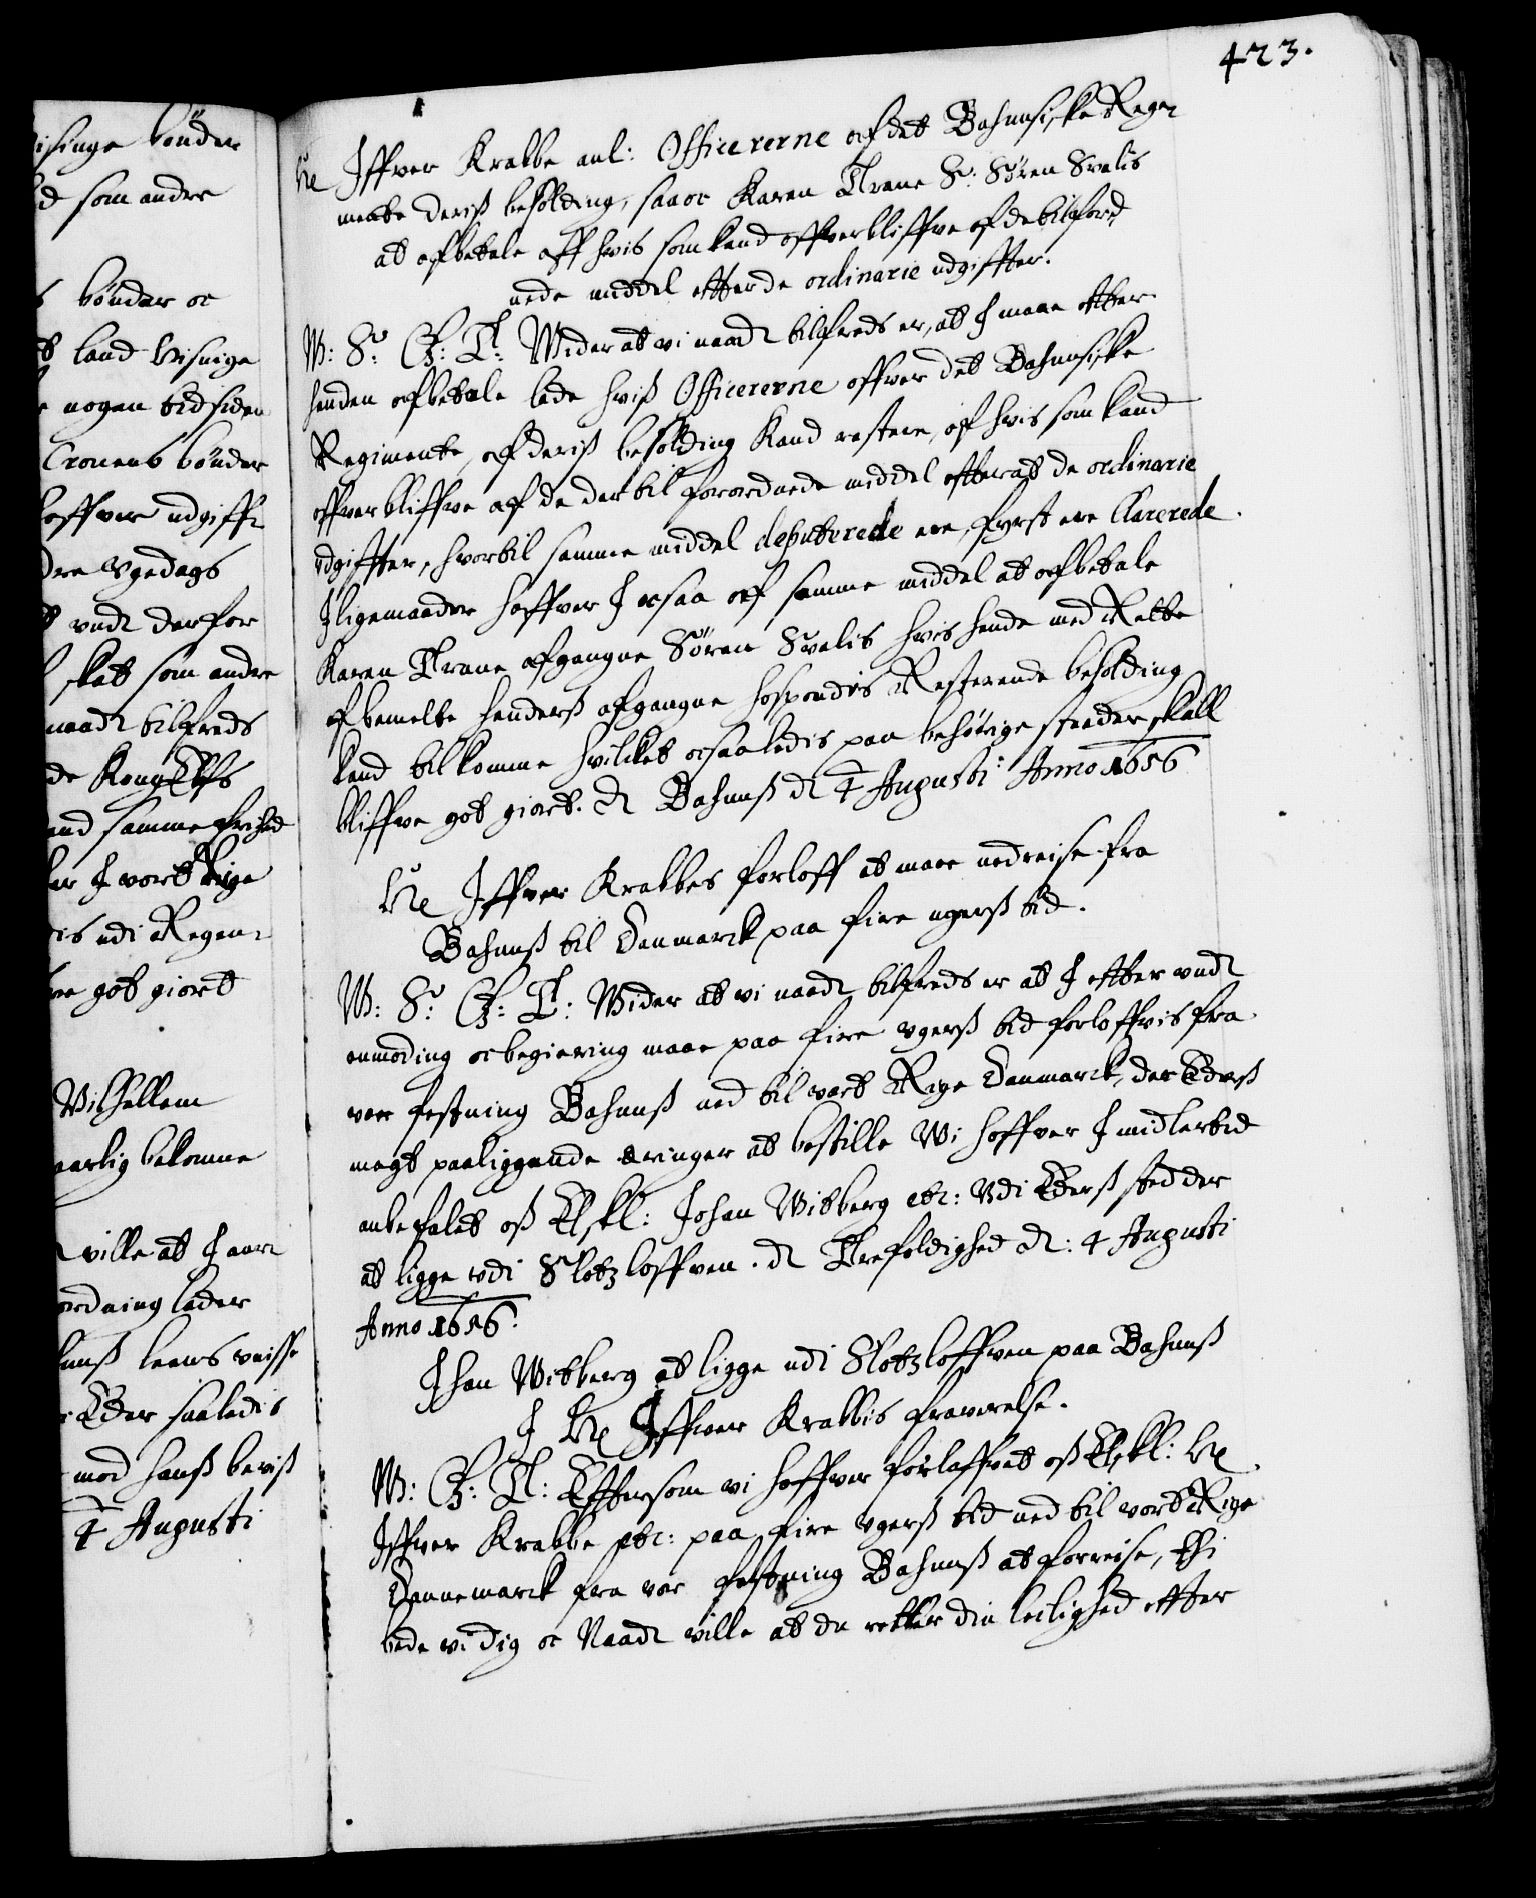 423.
isinge bönder
d som andre
s bönder oc
t land Visinge
r nogen tid siden
Cronens bönder
hoffver udgifft
dre Vgedags
t vndt derfor
l skat som andre
naadt tilfreds
de Kong
and samme frihed
er I vort Rige
is udi Regen
re got giort
Vilhellem
aarlig bekomme
ville at I aar
ordning lader
huuß leens visse
Eder saaledis
mod hanß beviß
4 Augusti
Hr Iffver Krabbe anl: Officererne af det Bahusiske Regi
mente deriß besolding, saa oc Karen Trane Sl: Sören Svalis
at afbetale aff hvis som kand offverbliffve af de tilford
nede middel efter de ordinarie udgiffter.
W: S: G: T: Wider at vi naadt tilfreds er, at I maae efter
henden afbetale lade hviß Officererne offver det Bahusiske
Regimente, af deriß besolding kand restere, af hvis som kand
offverbliffve af de der til forordnede middel efter at de ordinarie
vdgiffter, hvortil samme middel deputerede ere, fyrst ere Clarerede.
I ligemaader hoffver I ocsaa af samme middel at afbetale
Karen Trane afgangne Sören Svalis hvis hende med Rette
af bemelte henderß afgangne hosbondis Resterende besolding
kand tilkomme hvilcket ocsaaledis paa behörige steeder skall
bliffve got giort. dt Bahuuß dt 4 Augusti Anno 1656
Hr Iffver Krabbes forloff at maae nedreise fra
Bahuuß til Danmarck paa fire ugerß tid.
W: S: G: T: Wider at vi naadt tilfreds er at I efter vndt
anmoding oc begiering maae paa fire vgerß tid forloffvis fra
vor festning Bahuuß ned til vort Rige Danmarck, der Ederß
magt paaliggende æringer at bestille Wi hoffver I midlertid
anbefalet oß Elskl: Johan Witberg etc: Vdi Ederß sted der
at ligge vdi Slotzloffven. dt Trefoldighed dt: 4 Augusti
Anno 1656.
Ihan Witberg at ligge udi Slotzloffven paa Bahuuß
I Hr Iffver Krabbis fraverelse.
W: G: T: Effter som vi hoffver forloffvet oß Elskl: Hr
Iffver Krabbe etc: paa fire vgerß tid ned til vort Rige
Dannemarck fra vor festning Bahuuß at forreise, Thi
bede vi dig oc Naadt ville at du retter din leilighed efter